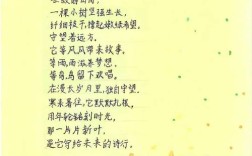 一棵小树坚强生长,
纤细枝干,撑起嫩绿希望。
守望着远方。
它等风,风带来故事,
等雨,雨滋养梦想,
等鸟,鸟留下欢唱。
在漫长岁月里,独自守望。
寒来暑往,它默默扎根,
用年轮铭刻时光,
那一片片新叶,
是它写给未来的诗行。